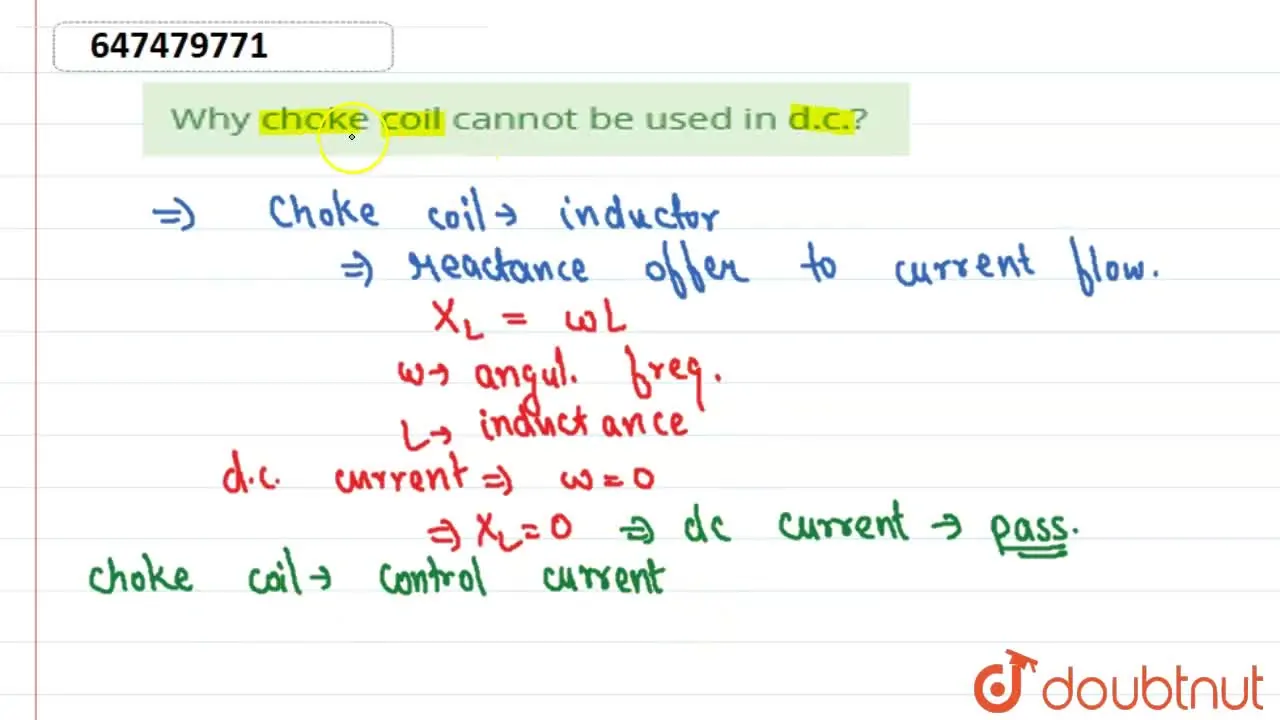 647479771
Why choke coil cannot be used in d.c.?
=> Choke coil → inductor
=> reactance offer to current flow.
X_L = ωL
ω → angul. freq.
L → inductance
d.c. current => ω = 0
=> X_L = 0 => dc current → pass.
Choke coil → control current
doubtnut